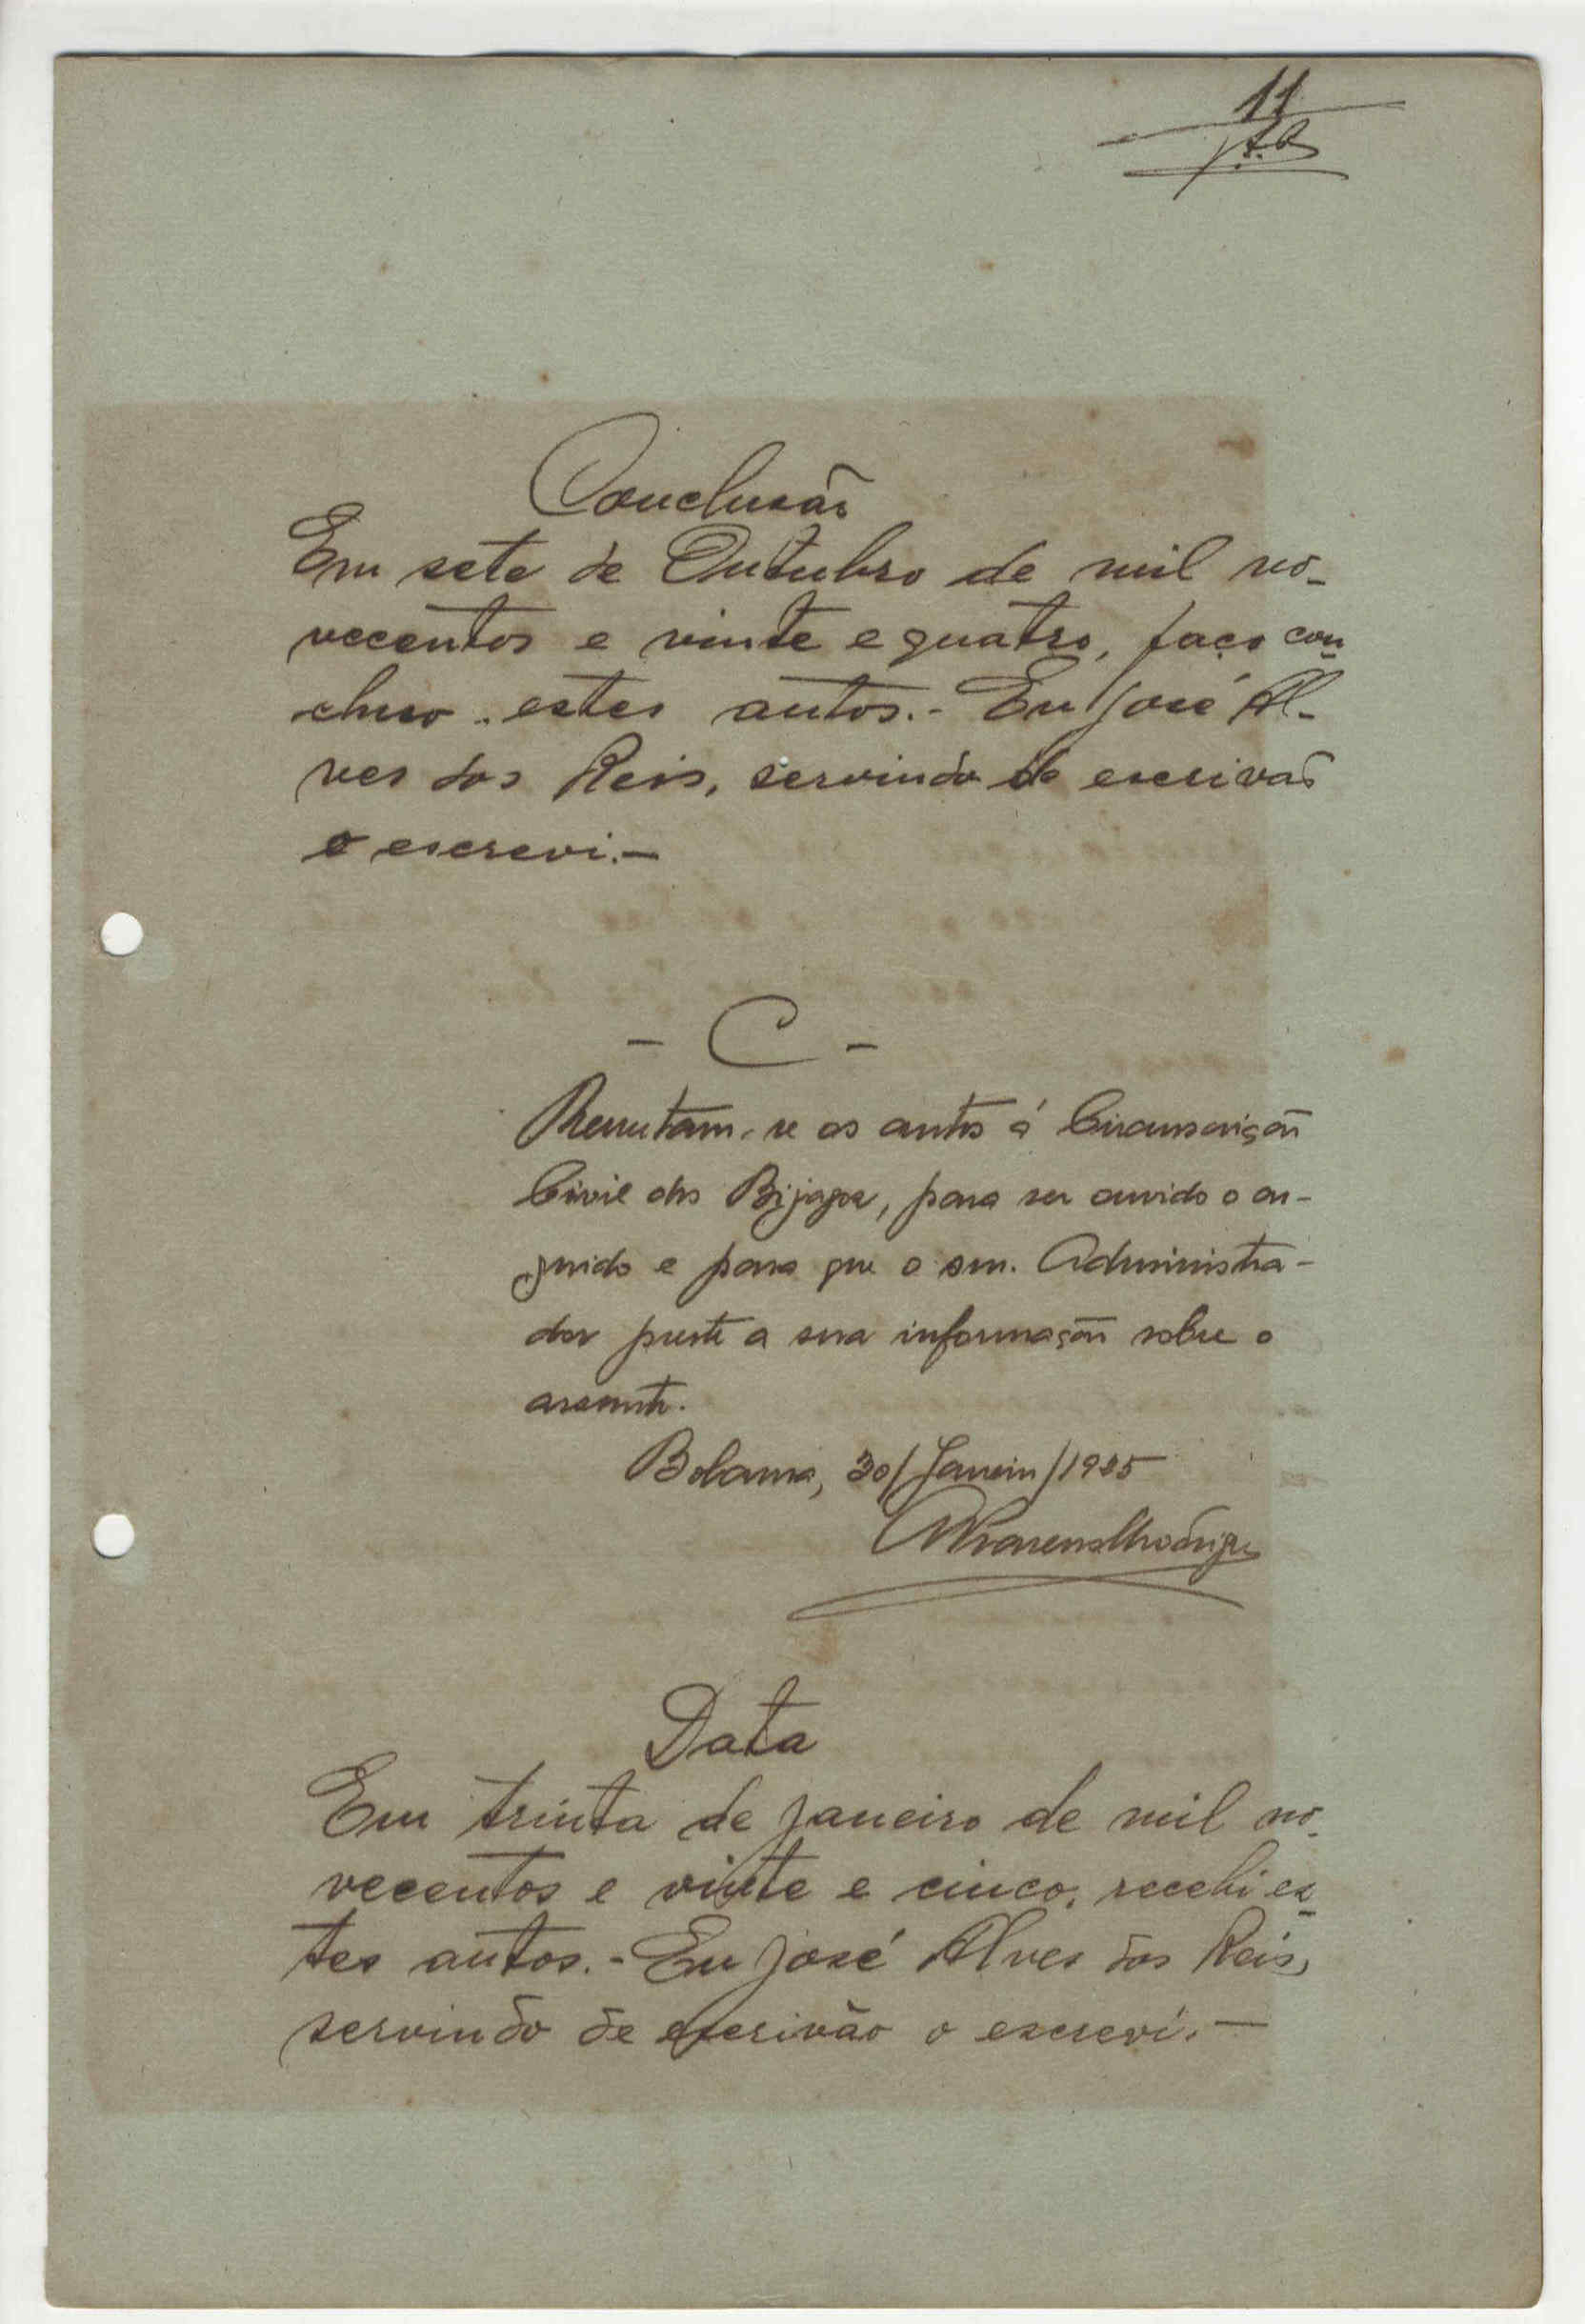 11
Conclusão
Em sete de Outubro de mil no-
vecentos e vinte e quatro, faço con
cluso estes autos.- Eu José Al-
ves dos Reis, servindo de escrivão
o escrevi.-
- C -
Remetam-se os autos á Circunscrição
Civil dos Bijagoz, para ser ouvido o ar-
guido e para que o snr. Administra-
dor preste a sua informação sobre o
assunto.
Bolama, 30/Janeiro/1925
Data
Em trinta de Janeiro de mil no-
vecentos e vinte e cinco, recebi es
tes autos.- Eu José Alves dos Reis,
servindo de escrivão o escrevi.-